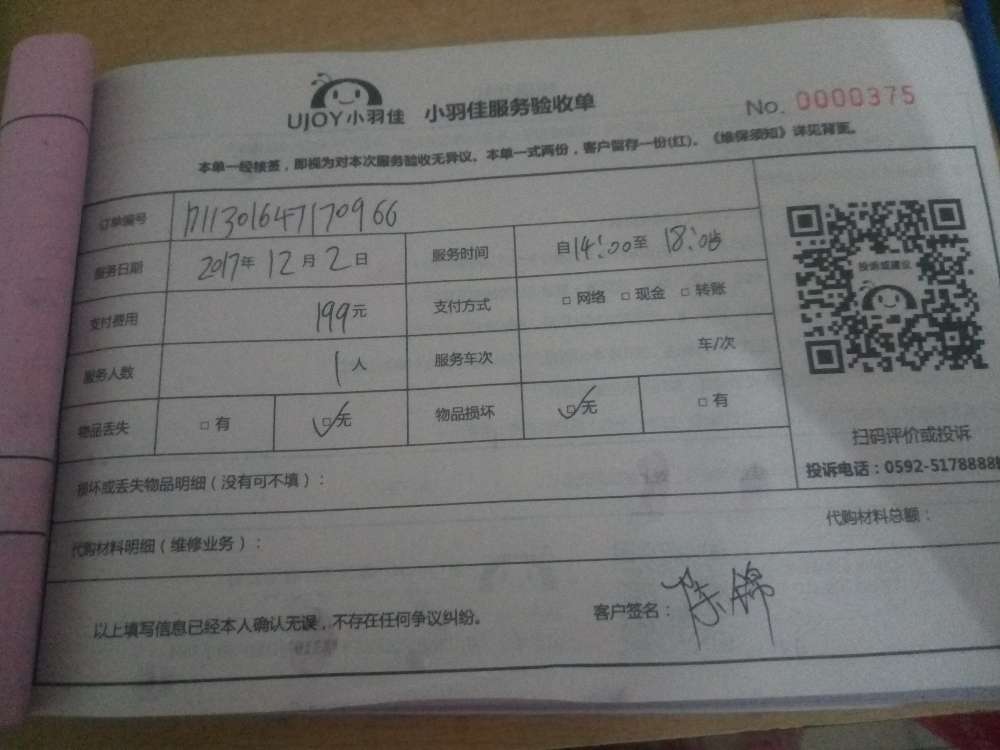 UJOY小羽佳 小羽佳服务验收单 No. 0000375
本单一经核签，即视为对本次服务验收无异议。本单一式两份，客户留存一份(红)。《维保须知》详见背面。
订单编号 1711301647170966
服务日期 2017年 12月 2日 服务时间 自14:00至 18:00
支付费用 199元 支付方式 □ 网络 □ 现金 □ 转账
服务人数 1人 服务车次 车/次
物品丢失 □ 有 ☑无 物品损坏 ☑无 □ 有
投诉或建议
扫码评价或投诉
投诉电话：0592-5178888
损坏或丢失物品明细（没有可不填）：
代购材料明细（维修业务）： 代购材料总额：
以上填写信息已经本人确认无误，不存在任何争议纠纷。 客户签名：陈锦